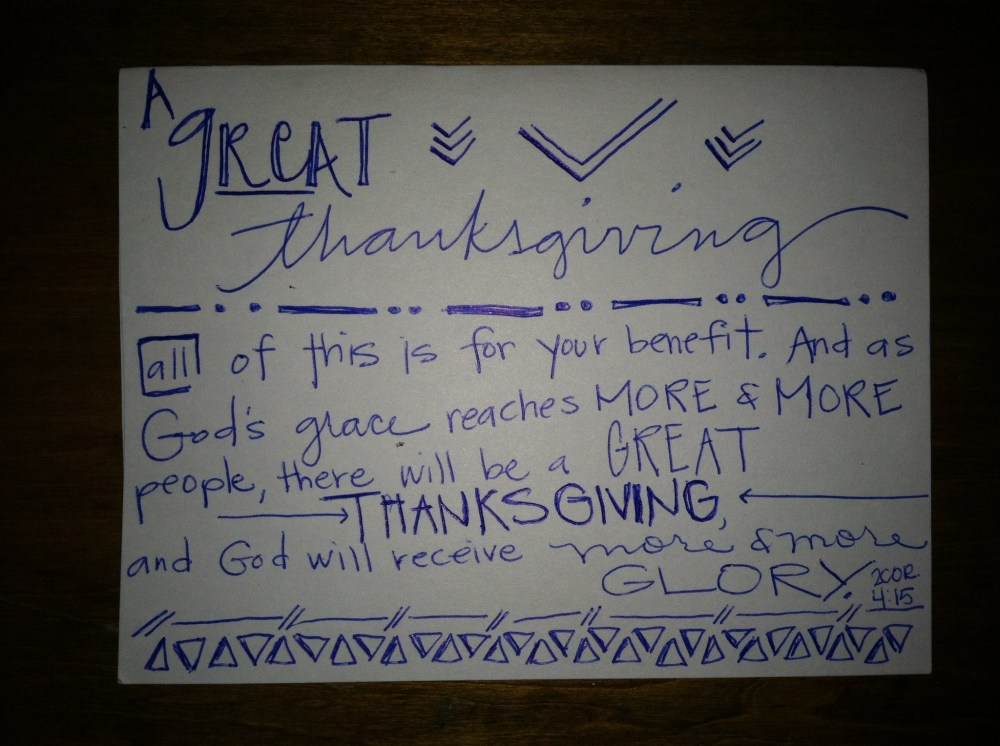 A gREAT
thanksgiving
all of this is for your benefit. And as
God's grace reaches MORE & MORE
people, there will be a GREAT
THANKSGIVING,
and God will receive more & more
GLORY. 2COR.
4:15